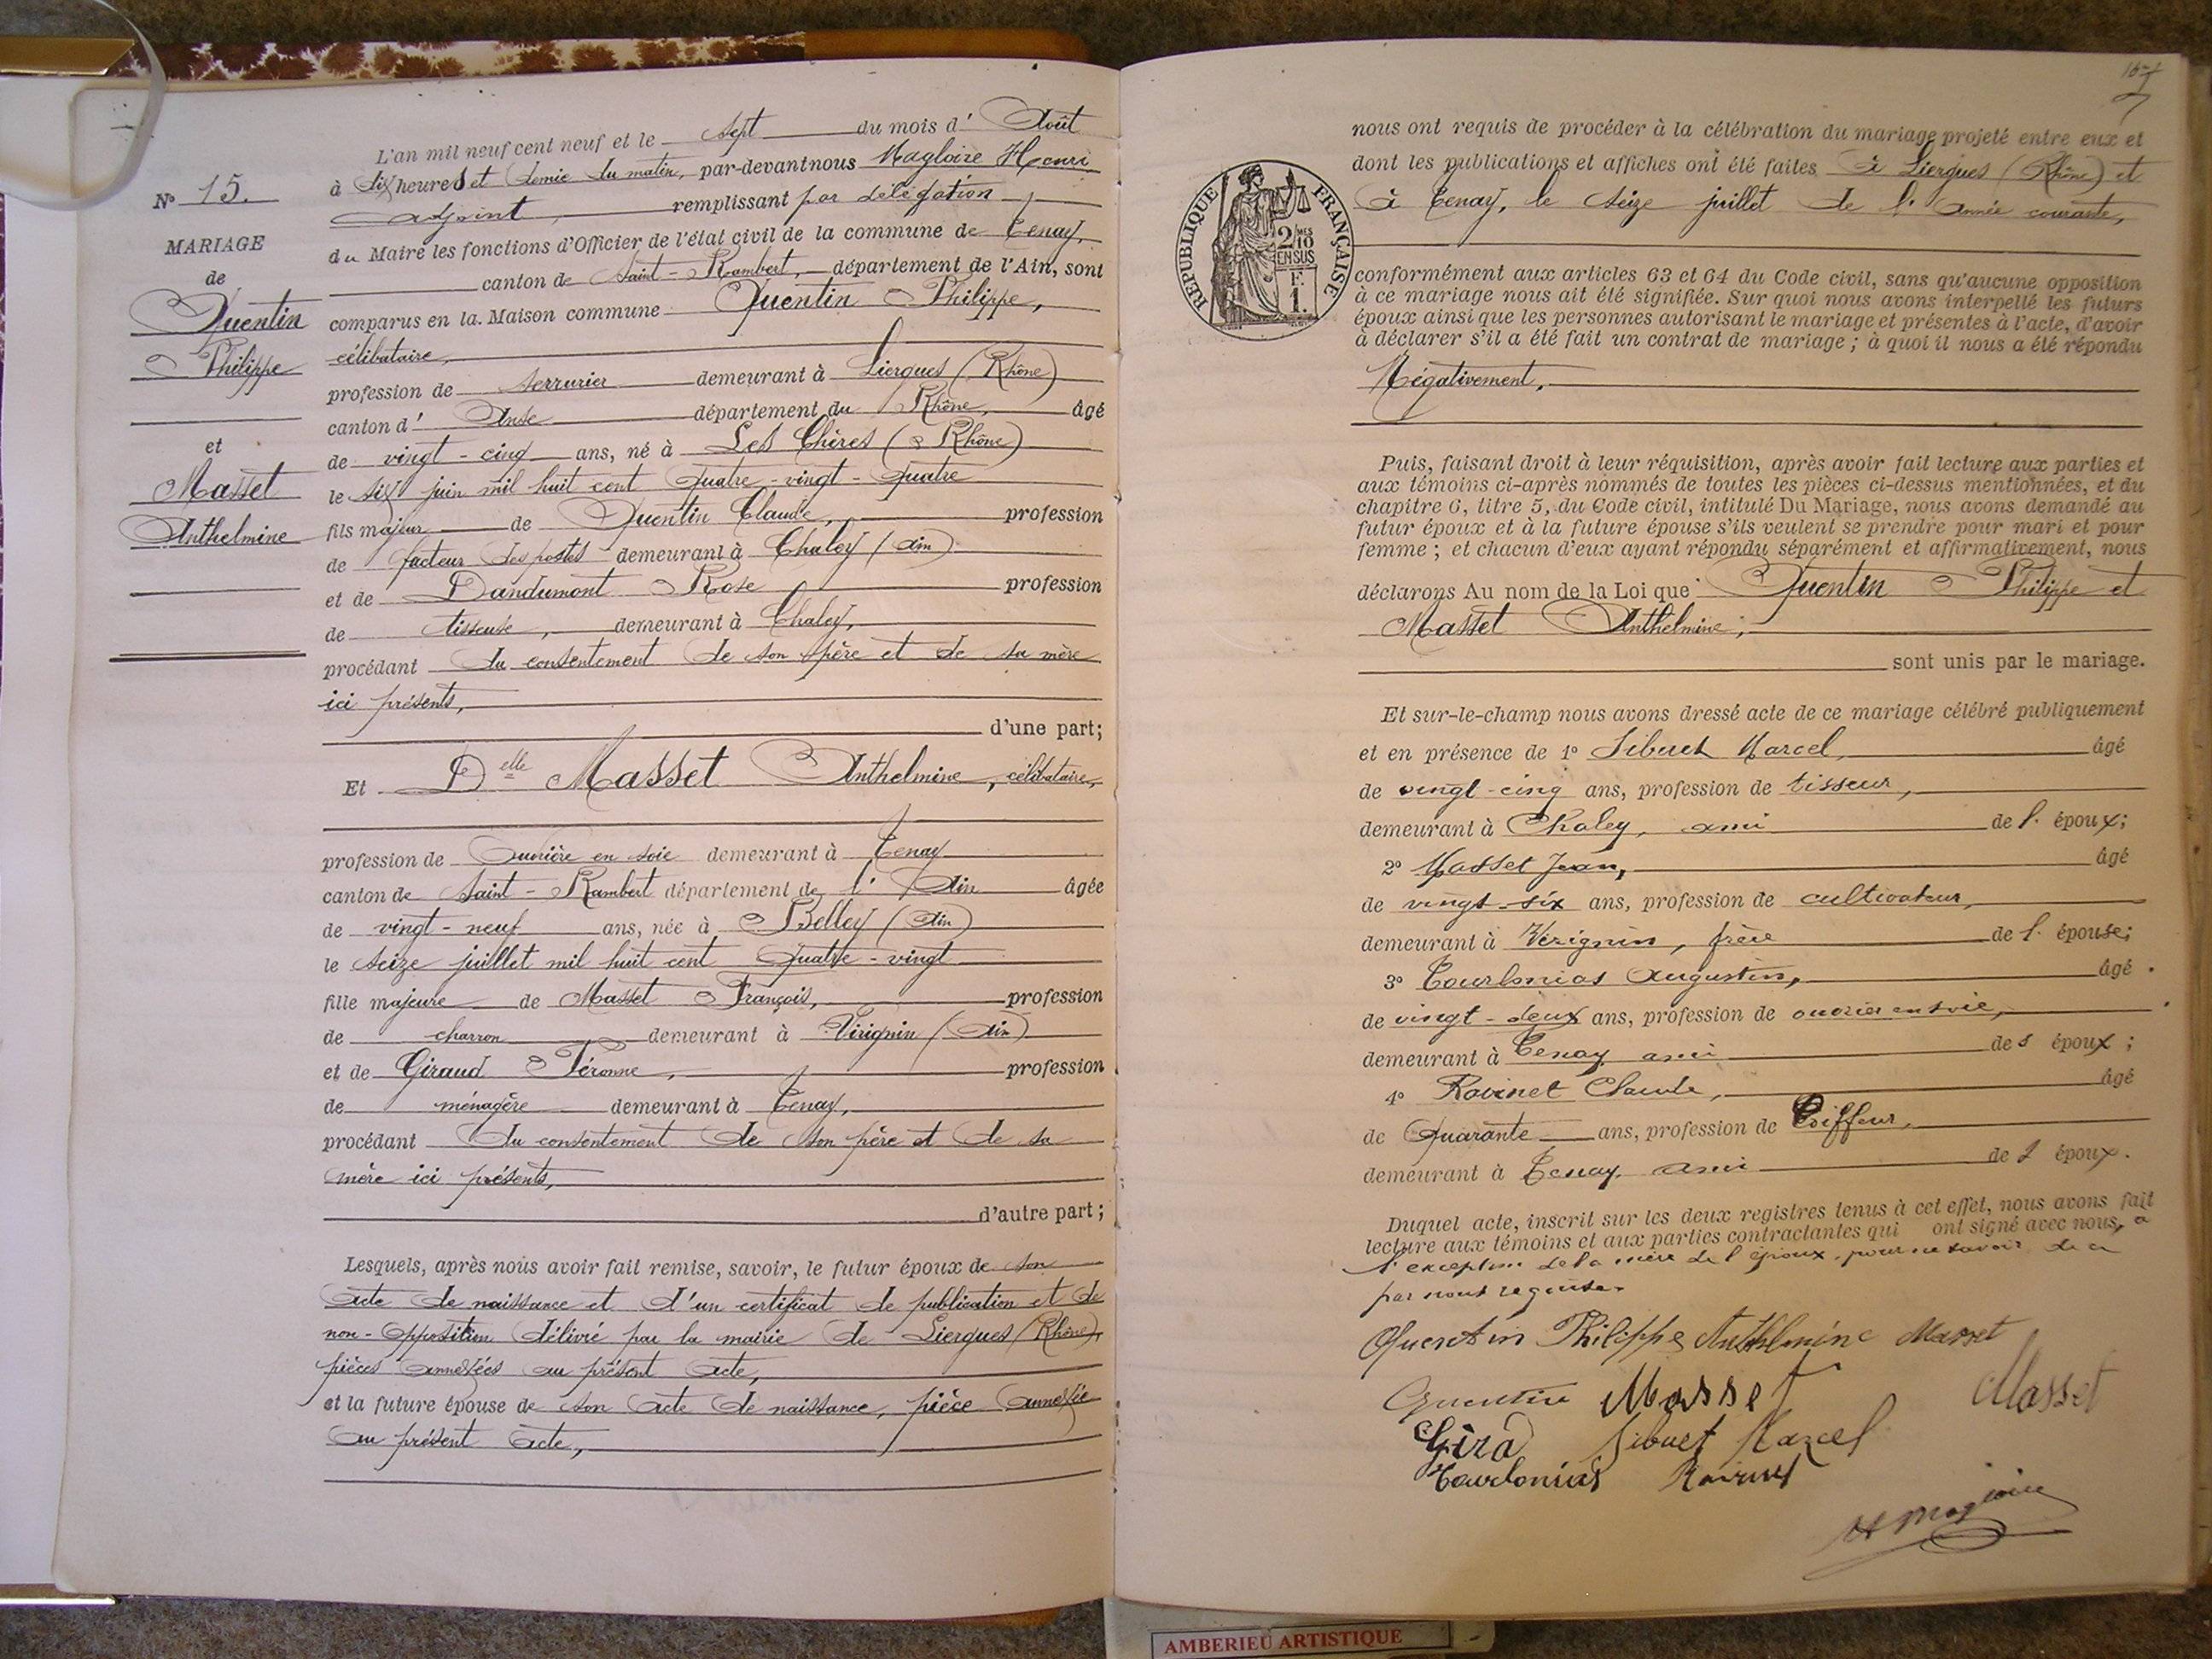 N° 15.
MARIAGE
de
Quentin
Philippe
et
Masset
Anthelmine
L'an mil neuf cent neuf et le sept du mois d' Août
à dix heures et demie du matin, par-devant nous Magloire Henri
adjoint, remplissant par délégation
du Maire les fonctions d'Officier de l'état civil de la commune de Tenay,
canton de Saint-Rambert, département de l'Ain, sont
comparus en la Maison commune Quentin Philippe,
célibataire,
profession de serrurier demeurant à Liergues (Rhône)
canton d' Anse département du Rhône, âgé
de vingt-cinq ans, né à Les Chères (Rhône)
le six juin mil huit cent quatre-vingt-quatre
fils majeur de Quentin Claude, profession
de facteur des postes demeurant à Chaley (Ain)
et de Dandumont Rose profession
de tisseuse, demeurant à Chaley,
procédant du consentement de son père et de sa mère
ici présents,
d'une part;
Et Delle Masset Anthelmine, célibataire,
profession de Ouvrière en soie demeurant à Tenay
canton de Saint-Rambert département de l' Ain âgée
de vingt-neuf ans, née à Belley (Ain)
le seize juillet mil huit cent quatre-vingt
fille majeure de Masset François, profession
de charron demeurant à Virignin (Ain)
et de Giraud Péronne, profession
de ménagère demeurant à Tenay,
procédant du consentement de son père et de sa
mère ici présents,
d'autre part;
Lesquels, après nous avoir fait remise, savoir, le futur époux de son
acte de naissance et d'un certificat de publication et de
non-opposition délivré par la mairie de Liergues (Rhône),
pièces annexées au présent acte,
et la future épouse de son acte de naissance, pièce annexée
au présent acte,
167
nous ont requis de procéder à la célébration du mariage projeté entre eux et
dont les publications et affiches ont été faites à Liergues (Rhône) et
à Tenay, le seize juillet de l'année courante,
RÉPUBLIQUE FRANÇAISE
2 MES
10
EN SUS
F.
1.
conformément aux articles 63 et 64 du Code civil, sans qu'aucune opposition
à ce mariage nous ait été signifiée. Sur quoi nous avons interpellé les futurs
époux ainsi que les personnes autorisant le mariage et présentes à l'acte, d'avoir
à déclarer s'il a été fait un contrat de mariage; à quoi il nous a été répondu
Négativement,
Puis, faisant droit à leur réquisition, après avoir fait lecture aux parties et
aux témoins ci-après nommés de toutes les pièces ci-dessus mentionnées, et du
chapitre 6, titre 5, du Code civil, intitulé Du Mariage, nous avons demandé au
futur époux et à la future épouse s'ils veulent se prendre pour mari et pour
femme; et chacun d'eux ayant répondu séparément et affirmativement, nous
déclarons Au nom de la Loi que Quentin Philippe et
Masset Anthelmine,
sont unis par le mariage.
Et sur-le-champ nous avons dressé acte de ce mariage célébré publiquement
et en présence de 1° Sibuet Marcel, âgé
de vingt-cinq ans, profession de tisseur,
demeurant à Chaley, ami de l' époux;
2° Masset Jean, âgé
de vingt-six ans, profession de cultivateur,
demeurant à Vérignin, frère de l' épouse;
3° Tourlonias Augustin, âgé
de vingt-deux ans, profession de ouvrier en soie,
demeurant à Tenay ami des époux;
4° Ravinet Claude, âgé
de Quarante ans, profession de Coiffeur,
demeurant à Tenay, ami de l' époux.
Duquel acte, inscrit sur les deux registres tenus à cet effet, nous avons fait
lecture aux témoins et aux parties contractantes qui ont signé avec nous, à
l'exception de la mère de l'époux, pour ne savoir, de ce
par nous requise.
Quentin Philippe Anthelmine Masset
Quentin Masset Masset
Sibuet Marcel
Tourlonias Ravinet
H Magloire
AMBERIEU ARTISTIQUE